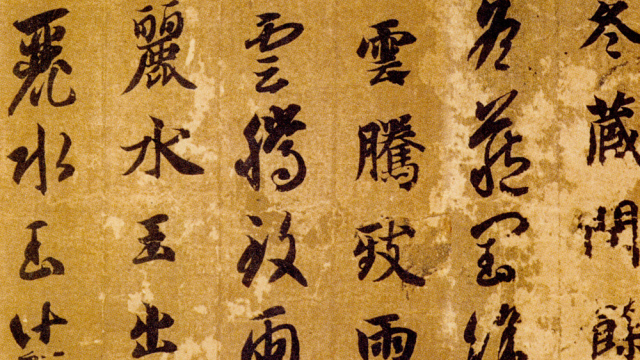 冬藏閏餘
冬藏閏餘
雲騰致雨
雲騰致雨
麗水玉出
麗水玉出